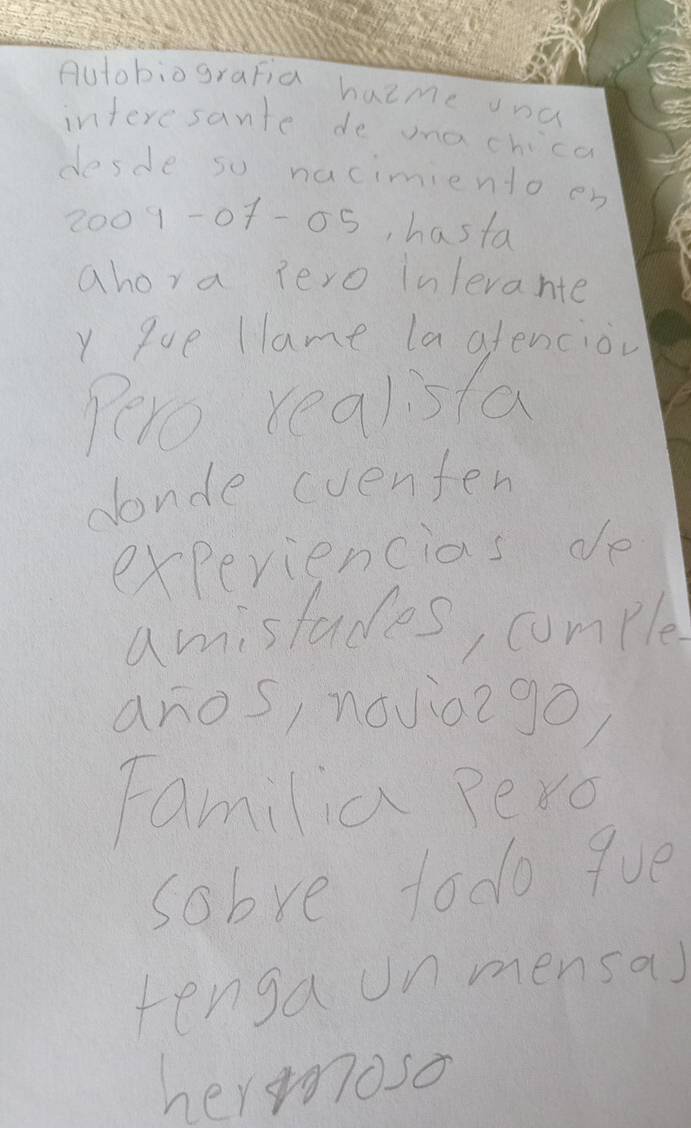 Autobiografia hazme una
interesante de una chica
desde su nacimiento en
2009-07-05, hasta
ahora Pero interante
y que llame la atención
Pero realista
donde cuenten
experiencias de
amistades, cumple-
años, noviazgo,
Familia Pero
sobre todo que
tenga un mensaj
hermoso